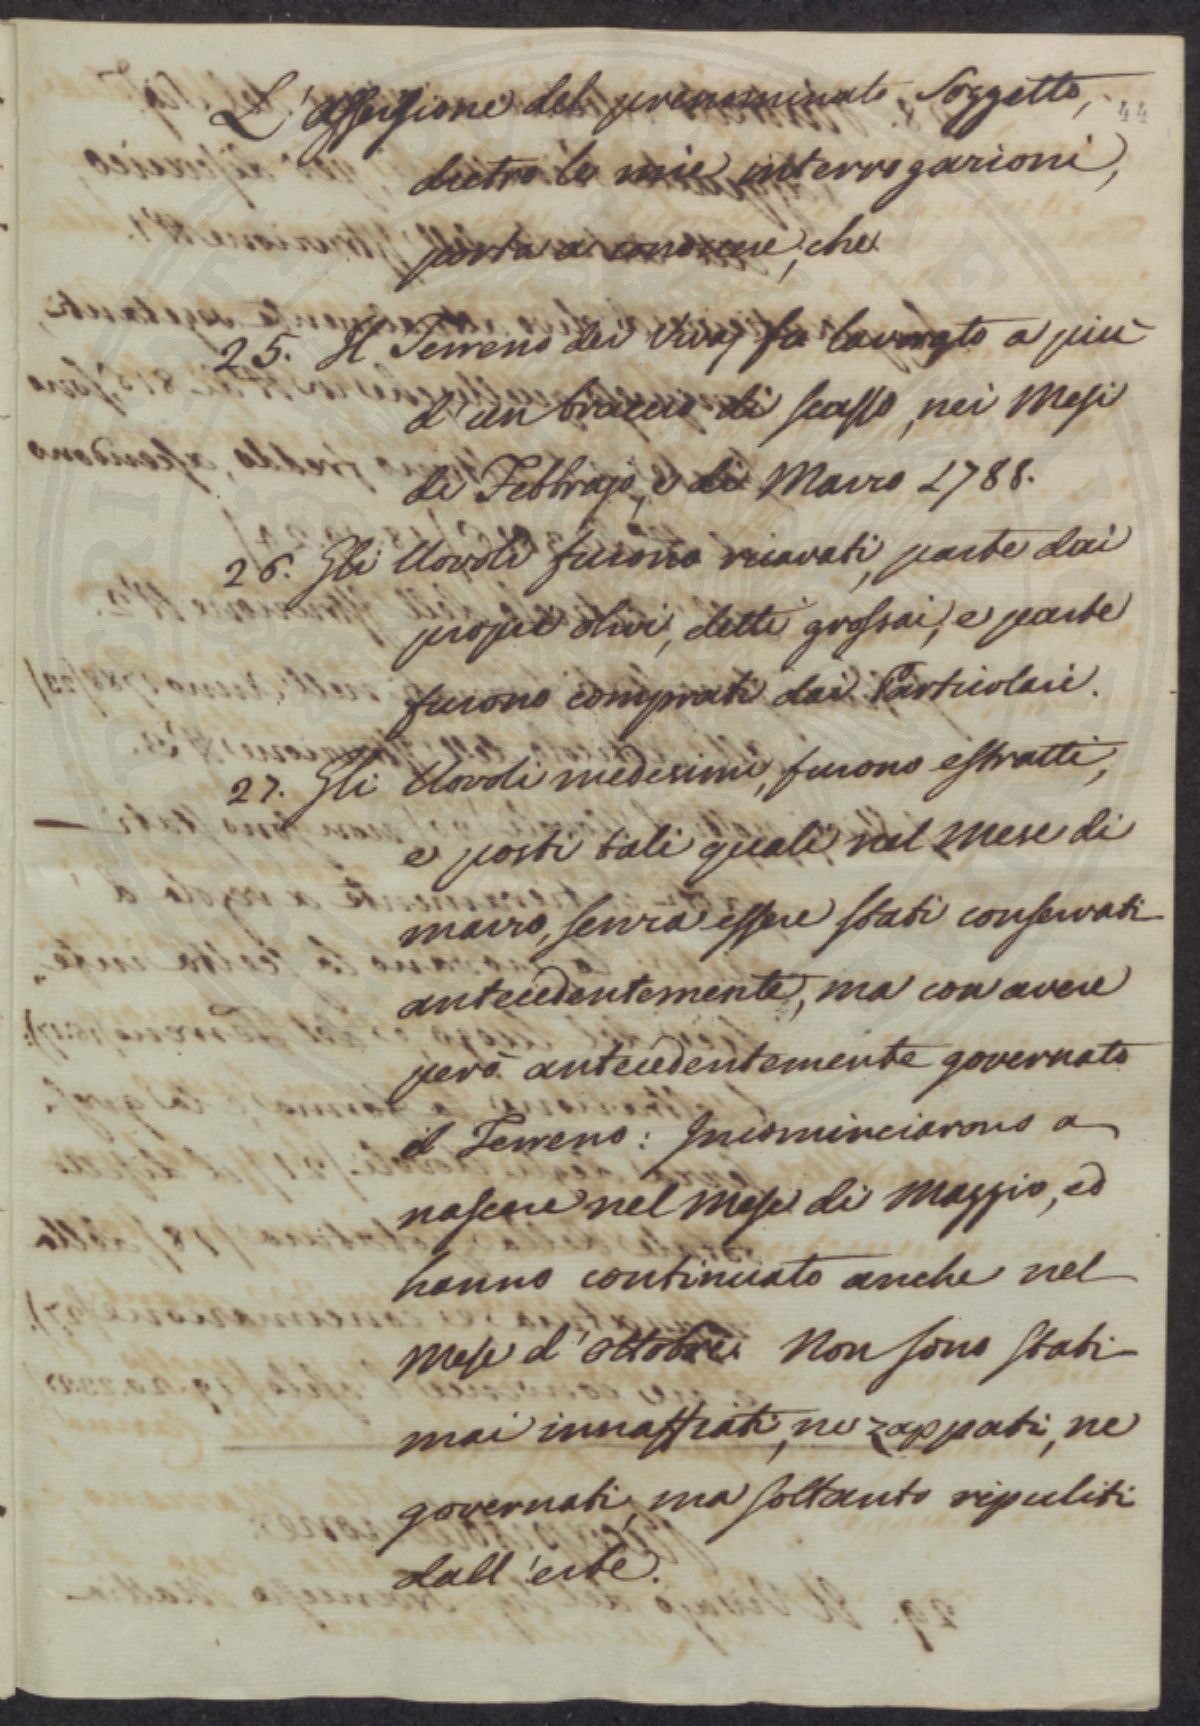 44
L'asserzione del prenominato Soggetto,
dietro le mie interrogazioni,
porta a conoscere, che
25. Il Terreno dei Vivaj fu lavorato a più
d'un braccio di scasso, nei Mesi
di Febbrajo, e di Marzo 1788.
26. Gli Uovoli furono ricavati, parte dai
propri olivi, detti grossai, e parte
furono comprati dai Particolari.
27. Gli Uovoli medesimi, furono estratti,
e posti tali quali nel Mese di
marzo, senza essere stati conservati
antecedentemente, ma con avere
però antecedentemente governato
il Terreno: Incominciarono a
nascere nel Mese di Maggio, ed
hanno continuato anche nel
Mese d'ottobre. Non sono stati
mai innaffiati, ne zappati, ne
governati, ma soltanto ripuliti
dall'erbe.